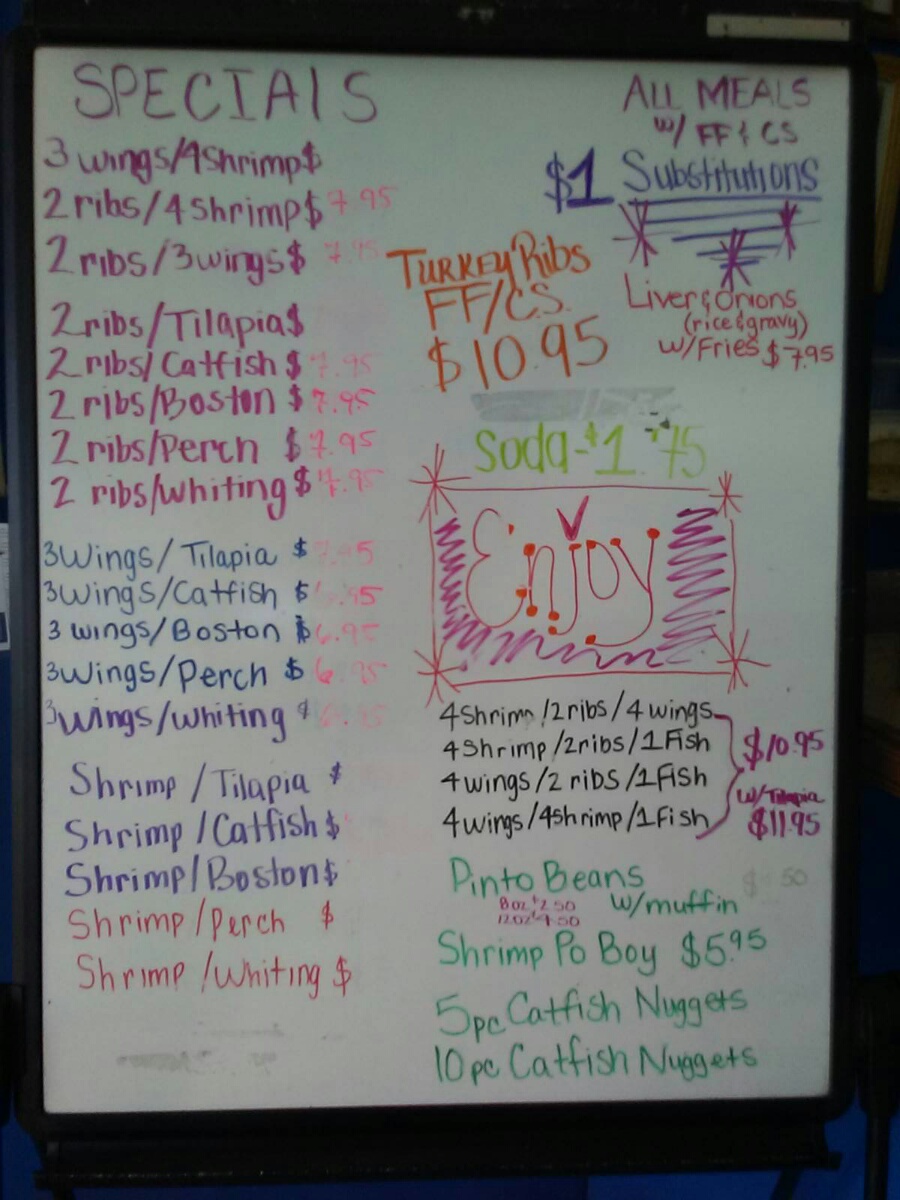 SPECIALS
3 wings/4 shrimp $
2 ribs/4 shrimp $ 7.95
2 ribs/3 wings $ 7.95
2 ribs/Tilapia $
2 ribs/Catfish $ 7.95
2 ribs/Boston $ 7.95
2 ribs/Perch $ 7.95
2 ribs/whiting $ 7.95
3 Wings/Tilapia $
3 Wings/Catfish $ 6.95
3 wings/Boston $ 6.95
3 Wings/Perch $ 6.95
3 Wings/Whiting $ 6.95
Shrimp /Tilapia $
Shrimp /Catfish $
Shrimp/Boston $
Shrimp /Perch $
Shrimp /Whiting $
ALL MEALS
w/ FF & CS
$1 Substitutions
TURKEY Ribs
FF/CS.
$10.95
Liver & Onions
(rice & gravy)
w/Fries $7.95
Soda - $1.75
Enjoy
4 Shrimp /2 ribs/ 4 wings
4 Shrimp /2 ribs/1 Fish
4 wings/2 ribs /1 Fish
4 wings/4 shrimp/1 Fish
$10.95
w/Tilapia
$11.95
Pinto Beans
8oz $2.50
12oz $4.50
w/muffin
Shrimp Po Boy $5.95
5pc Catfish Nuggets
10pc Catfish Nuggets